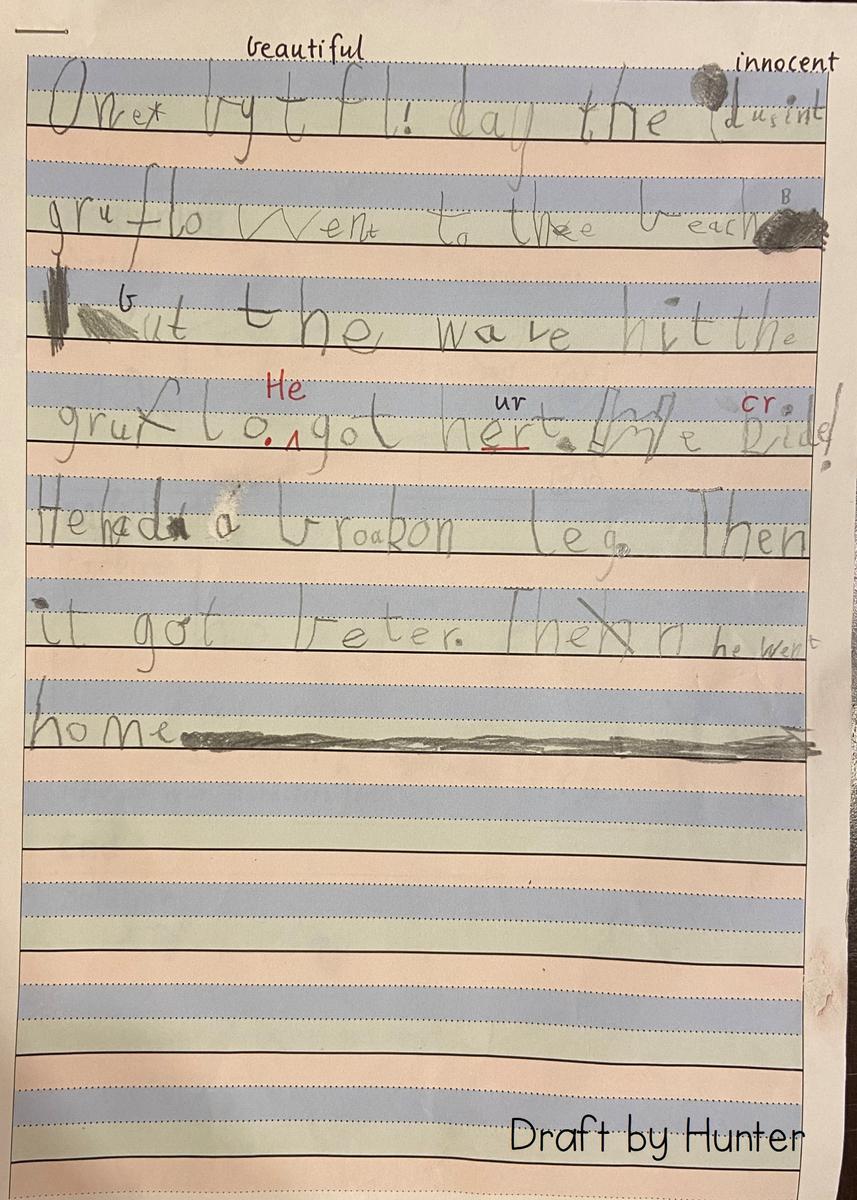 beautiful innocent
One bytfl! day the idusint
gruflo Went to thee beach B
b ut the wave hit the
He ur cr
gruflo. ^ got hert. e
He had a broabon leg. Then
it got beter. Then he went
home
Draft by Hunter